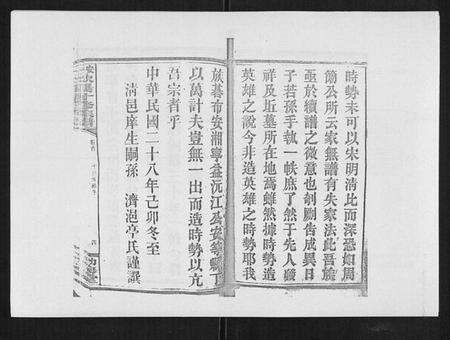 時勢未可以宋明清比而深恐如周
簡公所云家無譜有失家法此吾族
亟於續譜之微意也剞劂告成異日
子若孫手執一帙庶了然于先人顯
祥及坵墓所在地焉雖然據時勢造
英雄之說今非造英雄之時勢耶我
族碁布安湘寧益沅江
以萬計夫豈無一出而造時勢以亢
吾宗者乎
中華民國二十八年己卯冬至
清邑庠生嗣孫 濟 亭氏謹譔